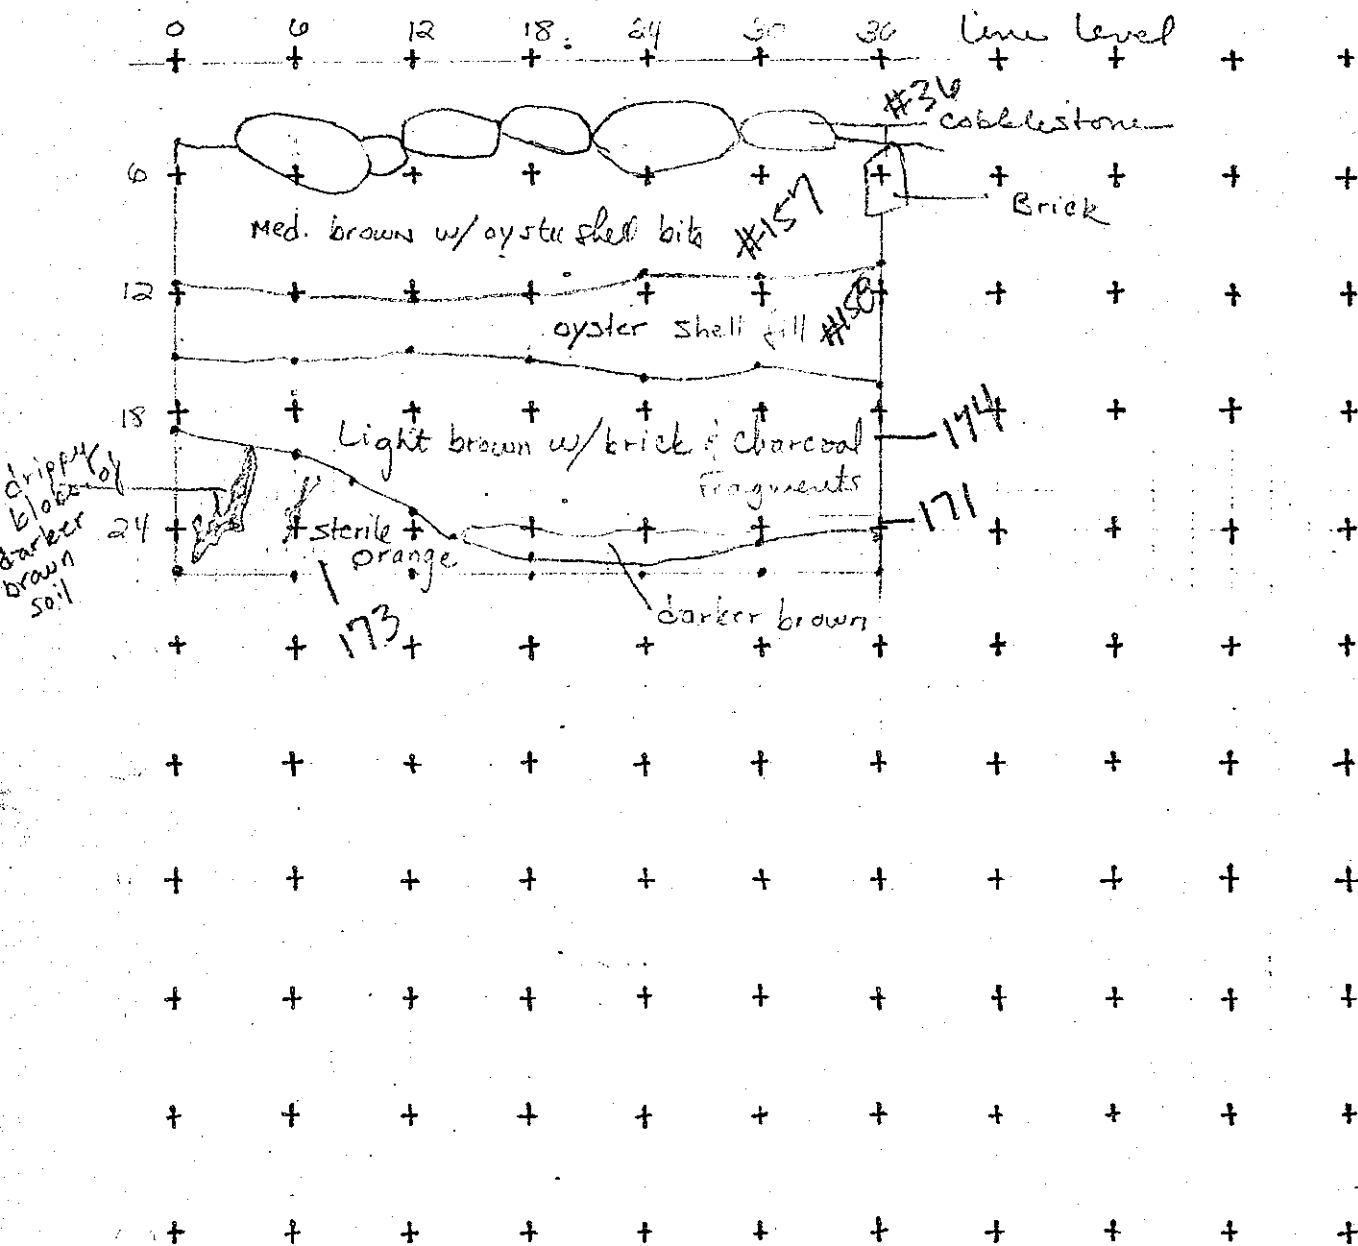 0 6 12 18 24 30 36 Line level
#36
cobblestone
6
Brick
Med. brown w/ oyster shell bits #157
12
oyster shell fill #158
18
Light brown w/ brick & charcoal 174
Fragments
drippy
blobs of
darker
brown
soil
24
171
sterile
orange
173
darker brown